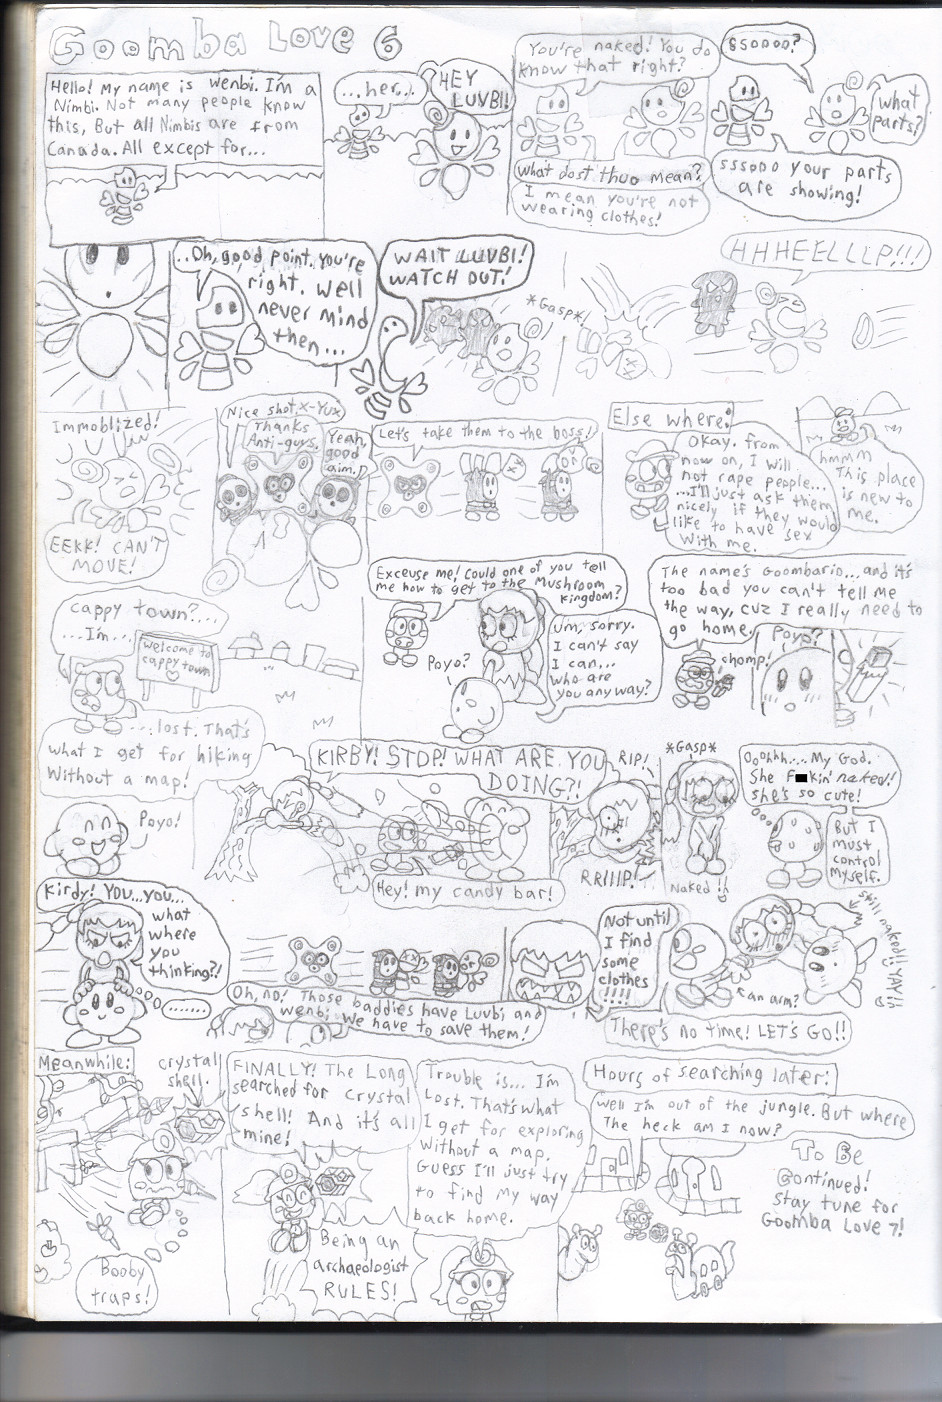 Goomba Love 6
Hello! My name is wenbi. I'm a
Nimbi. Not many people know
this, But all Nimbis are from
Canada. All except for...
...her...
HEY
LUVBI!
You're naked! You do
know that right?
What dost thuo mean?
I mean you're not
wearing clothes!
ssoooo?
what
parts?
sssooo your parts
are showing!
..Oh, good point. You're
right. Well
never mind
then...
WAIT LUVBI!
WATCH OUT!
*Gasp*!
HHHEELLLP!!!
Immoblized!
EEKK! CAN'T
MOVE!
Nice shot, X-Yux
Thanks
Anti-guys.
Yeah,
good
aim.
Let's take them to the boss!
Else where:
Okay. from
now on, I will
not rape people...
...I'll just ask them
nicely if they would
like to have sex
with me.
hmmm
This place
is new to
me.
cappy town?...
...I'm...
welcome to
cappy town
...lost. That's
what I get for hiking
Without a map!
Exceuse me! Could one of you tell
me how to get to the Mushroom
Kingdom?
Poyo?
Um, sorry.
I can't say
I can...
who are
you any way?
The name's Goombario...and it's
too bad you can't tell me
the way, cuz I really need to
go home.
chomp!
Poyo?
Poyo!
KIRBY! STOP! WHAT ARE YOU
DOING?!
Hey! my candy bar!
RIP!
RRIIIP!
*Gasp*
Naked!!
Ooohhh.... My God.
She F kin' naked!
She's so cute!
But I
must
control
Myself.
Kirdy! YOU...YOU...
what
where
you
thinking?!
.......
Oh, no! Those baddies have Luvbi and
wenbi. We have to save them!
Not until
I find
some
clothes
!!!!
can arm?
still naked!! YAY!!
There's no time! LET'S GO!!
Meanwhile:
crystal
shell.
Booby
traps!
FINALLY! The Long
searched for Crystal
shell! And it's all
mine!
Being an
archaeologist
RULES!
Trouble is... I'm
Lost. That's what
I get for exploring
without a map.
Guess I'll just try
to find my way
back home.
Hours of searching later:
Well I'm out of the jungle. But where
The heck am I now?
To Be
Continued!
Stay tune for
Goomba Love 7!